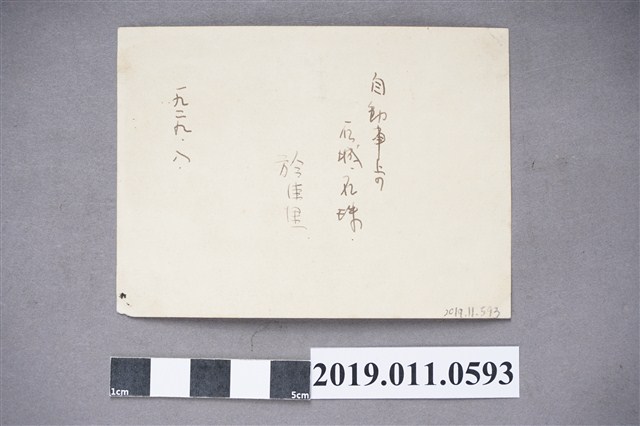 自動車上の
石城、石珠、
於東港、
一九二九、八、
2019.11.593
1cm
5cm
2019.011.0593